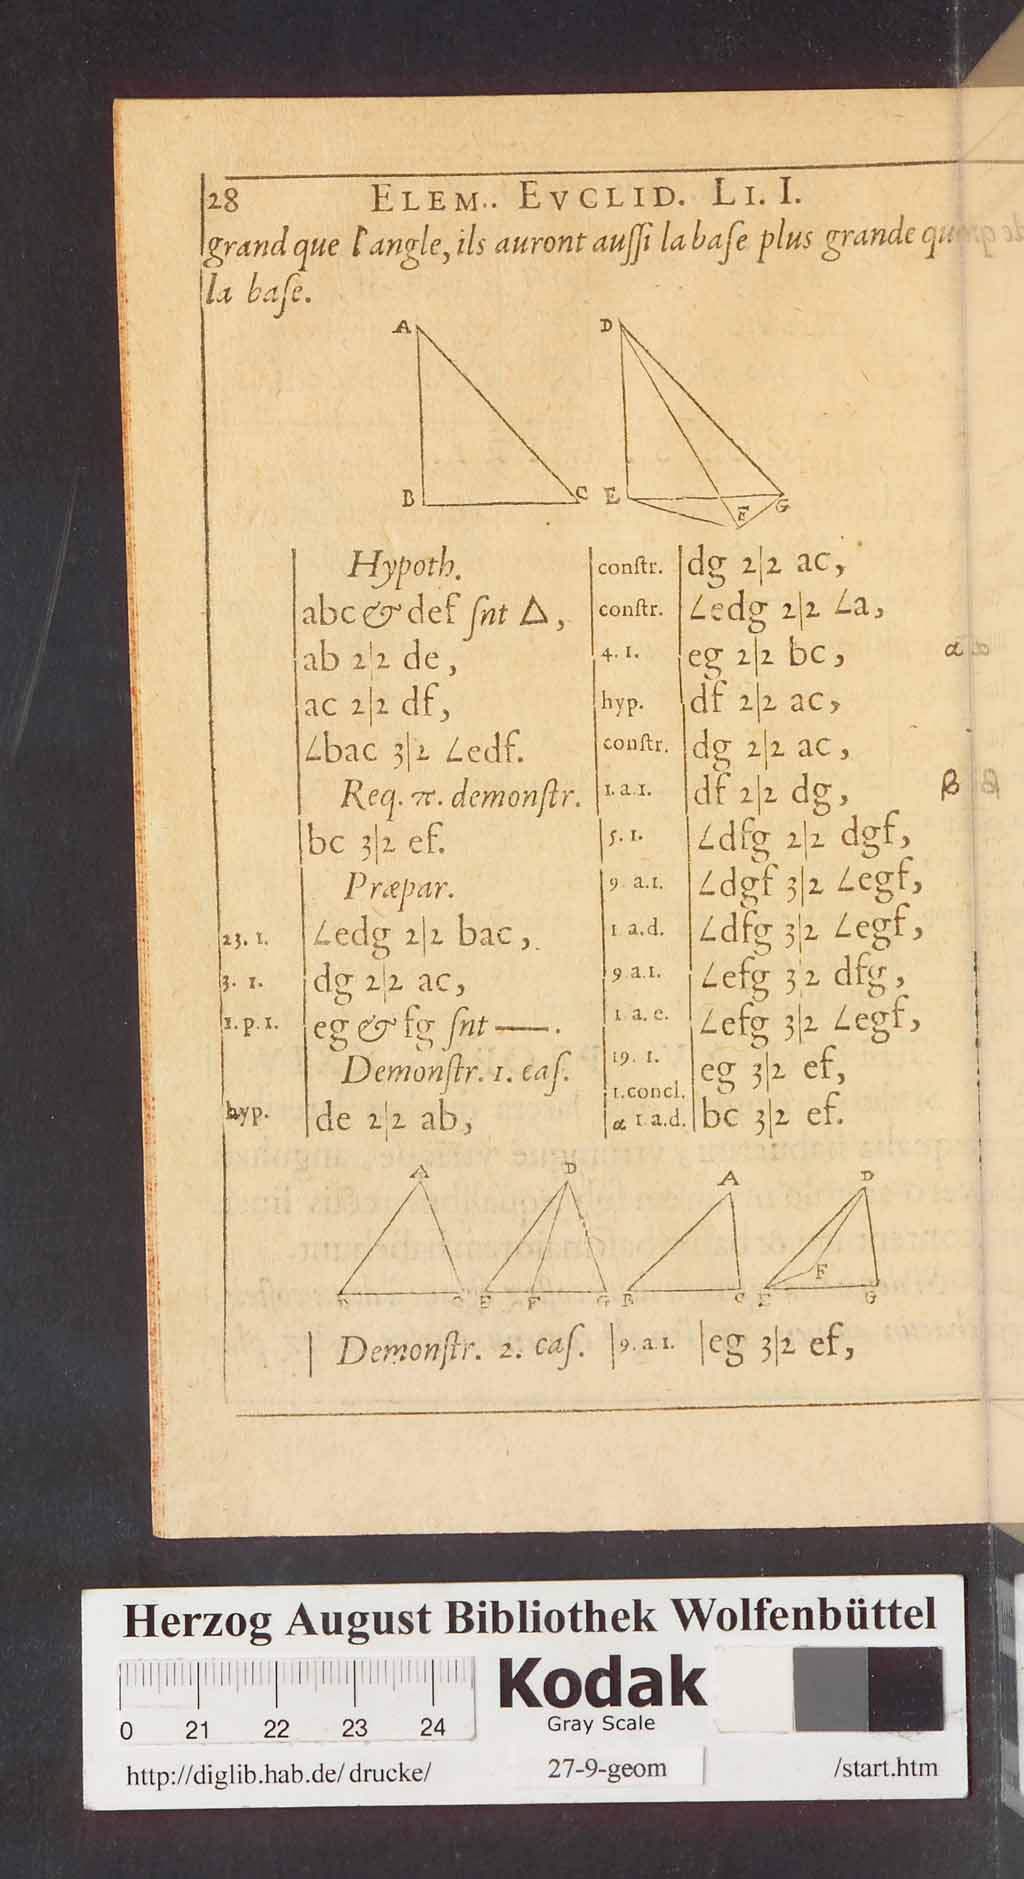 28 ELEM.. EVCLID. LI. I.
grand que l'angle, ils auront auſſi la baſe plus grande que
la baſe.
A D
B C E F G
Hypoth.
abc & def ſnt Δ,
ab 2|2 de,
ac 2|2 df,
∠bac 3|2 ∠edf.
Req. π. demonſtr.
bc 3|2 ef.
Præpar.
23. 1. ∠edg 2|2 bac,
3. 1. dg 2|2 ac,
1. p. 1. eg & fg ſnt —.
Demonſtr. 1. caſ.
hyp. de 2|2 ab,
conſtr. dg 2|2 ac,
conſtr. ∠edg 2|2 ∠a,
4. 1. eg 2|2 bc, α
hyp. df 2|2 ac,
conſtr. dg 2|2 ac,
1. a. 1. df 2|2 dg, β
5. 1. ∠dfg 2|2 dgf,
9. a. 1. ∠dgf 3|2 ∠egf,
1. a. d. ∠dfg 3|2 ∠egf,
9. a. 1. ∠efg 3|2 dfg,
1. a. e. ∠efg 3|2 ∠egf,
19. 1. eg 3|2 ef,
1. concl.
α 1. a. d. bc 3|2 ef.
A D A D
B C E F G B C E F G
Demonſtr. 2. caſ. | 9. a. 1. | eg 3|2 ef,
Herzog August Bibliothek Wolfenbüttel
Kodak
Gray Scale
0 21 22 23 24
http://diglib.hab.de/drucke/ 27-9-geom /start.htm